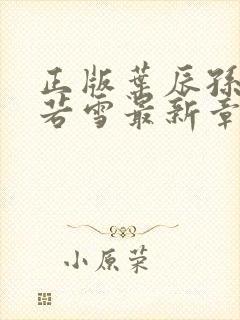 正版叶辰孙
若雪最新章
小原荣